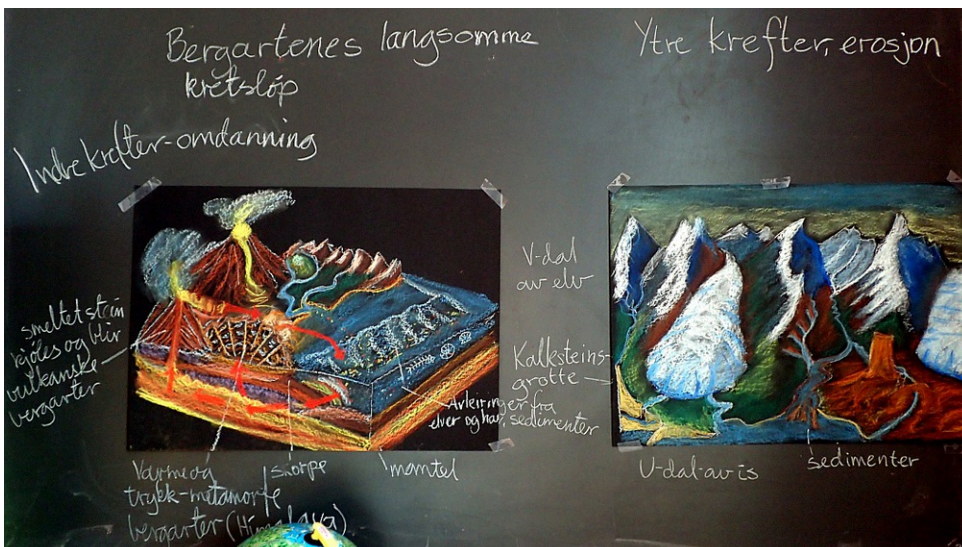 Bergartenes langsomme
kretsløp
Ytre krefter, erosjon
Indre krefter-omdanning
smeltet stein
kjøles og blir
vulkanske
bergarter
V-dal
av elv
Kalksteins-
grotte
Avleiringer fra
elver og hav, sedimenter
Varme og
trykk-metamorfe
bergarter (Himalaya)
skorpe
mantel
U-dal-av is
sedimenter